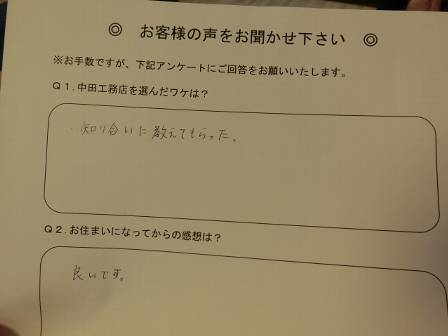 ◎ お客様の声をお聞かせ下さい ◎
※お手数ですが、下記アンケートにご回答をお願いいたします。
Q1.中田工務店を選んだワケは？
・知り合いに教えてもらった。
Q2.お住まいになってからの感想は？
良いです。